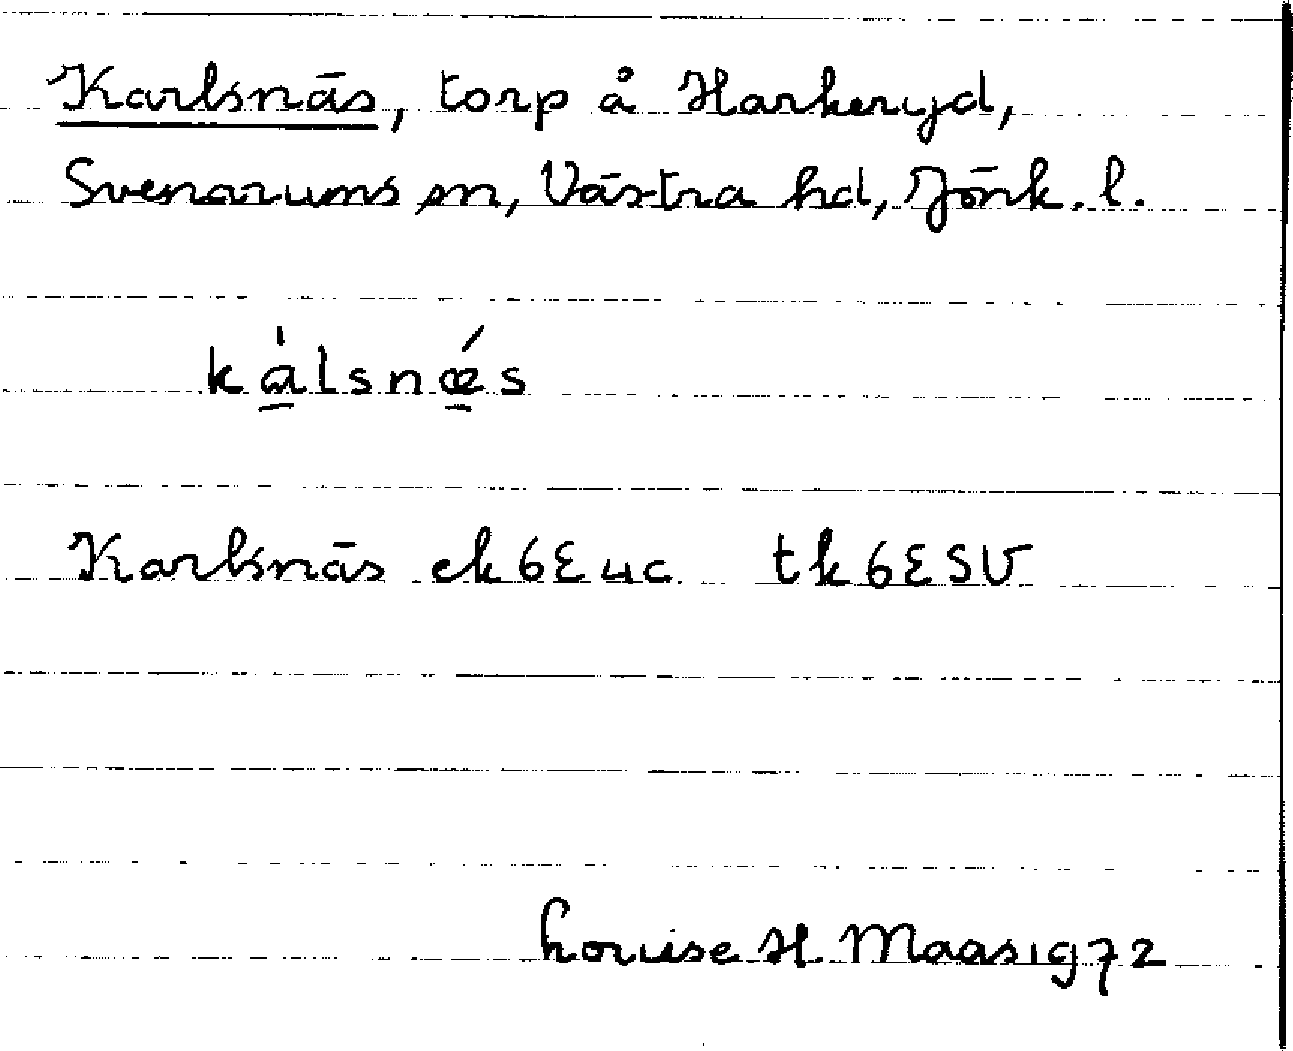 Karlsnäs, torp å Harkeryd,
Svenarums sn, Västra hd, Jönk. l.
kálsnǽs
Karlsnäs ek 6E4c tk 6ESV
Louise H Maas 1972